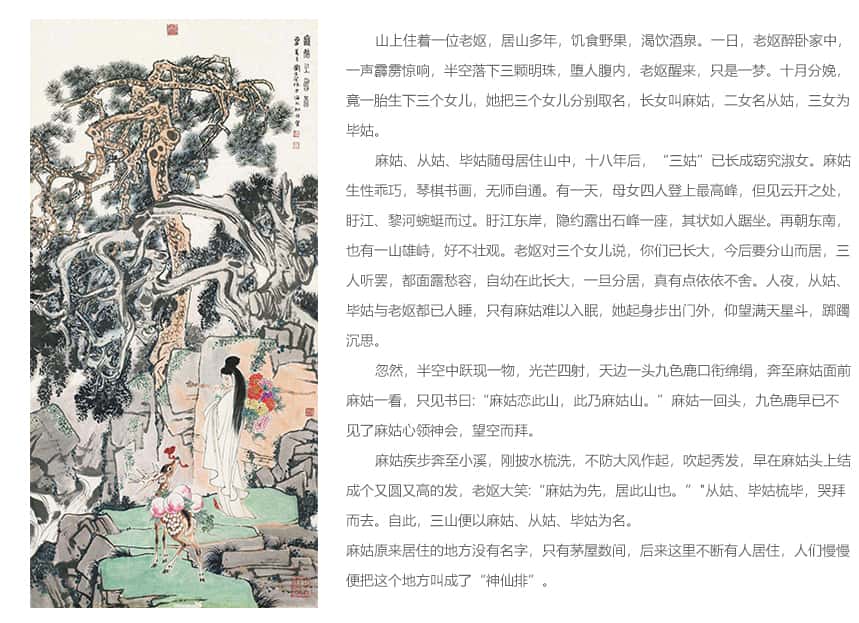 山上住着一位老妪，居山多年，饥食野果，渴饮酒泉。一日，老妪醉卧家中，
一声霹雳惊响，半空落下三颗明珠，堕人腹内，老妪醒来，只是一梦。十月分娩，
竟一胎生下三个女儿，她把三个女儿分别取名，长女叫麻姑，二女名从姑，三女为
毕姑。
麻姑、从姑、毕姑随母居住山中，十八年后，“三姑”已长成窈究淑女。麻姑
生性乖巧，琴棋书画，无师自通。有一天，母女四人登上最高峰，但见云开之处，
盱江、黎河蜿蜒而过。盱江东岸，隐约露出石峰一座，其状如人踞坐。再朝东南，
也有一山雄峙，好不壮观。老妪对三个女儿说，你们已长大，今后要分山而居，三
人听罢，都面露愁容，自幼在此长大，一旦分居，真有点依依不舍。人夜，从姑、
毕姑与老妪都已人睡，只有麻姑难以入眠，她起身步出门外，仰望满天星斗，踯躅
沉思。
忽然，半空中跃现一物，光芒四射，天边一头九色鹿口衔绵绢，奔至麻姑面前
麻姑一看，只见书曰:“麻姑恋此山，此乃麻姑山。”麻姑一回头，九色鹿早已不
见了麻姑心领神会，望空而拜。
麻姑疾步奔至小溪，刚披水梳洗，不防大风作起，吹起秀发，早在麻姑头上结
成个又圆又高的发，老妪大笑:“麻姑为先，居此山也。”"从姑、毕姑梳毕，哭拜
而去。自此，三山便以麻姑、从姑、毕姑为名。
麻姑原来居住的地方没有名字，只有茅屋数间，后来这里不断有人居住，人们慢慢
便把这个地方叫成了“神仙排”。